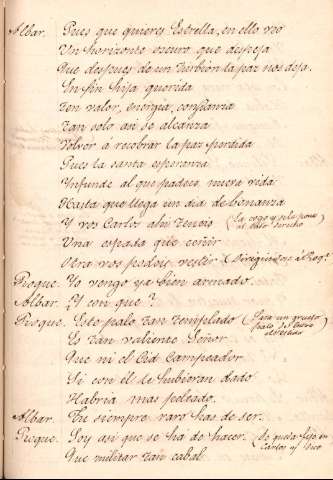 Albar. Pues que quieres Estrella, en ello veo
Un horizonte oscuro que despeja
Que despues de un turbión la paz nos deja.
En fin hija querida
Ten valor, energia, confianza
Tan solo asi se alcanza
Volver á recobrar la paz perdida
Pues la santa esperanza
Infunde al que padece nueva vida
Hasta que llega un dia de bonanza
Y vos Carlos ahi teneis (La coge y se la pone
Una espada que ceñir
Otra vos podeis vestir (Dirigiendose á Roq.
Roque. Yo vengo ya bien armado.
Albar. ¿Y con que?
Roque. Este palo tan templado (Saca un grueso palo de
Es tan valiente Señor.
Que ni el Cid Campeador
Si con él le hubieran dado
Habria mas peleado.
Albar. Tu siempre raro has de ser.
Roque. Soy asi que se ha de hacer. (Se queda fijo en Carlos y
Que militar tan cabal.